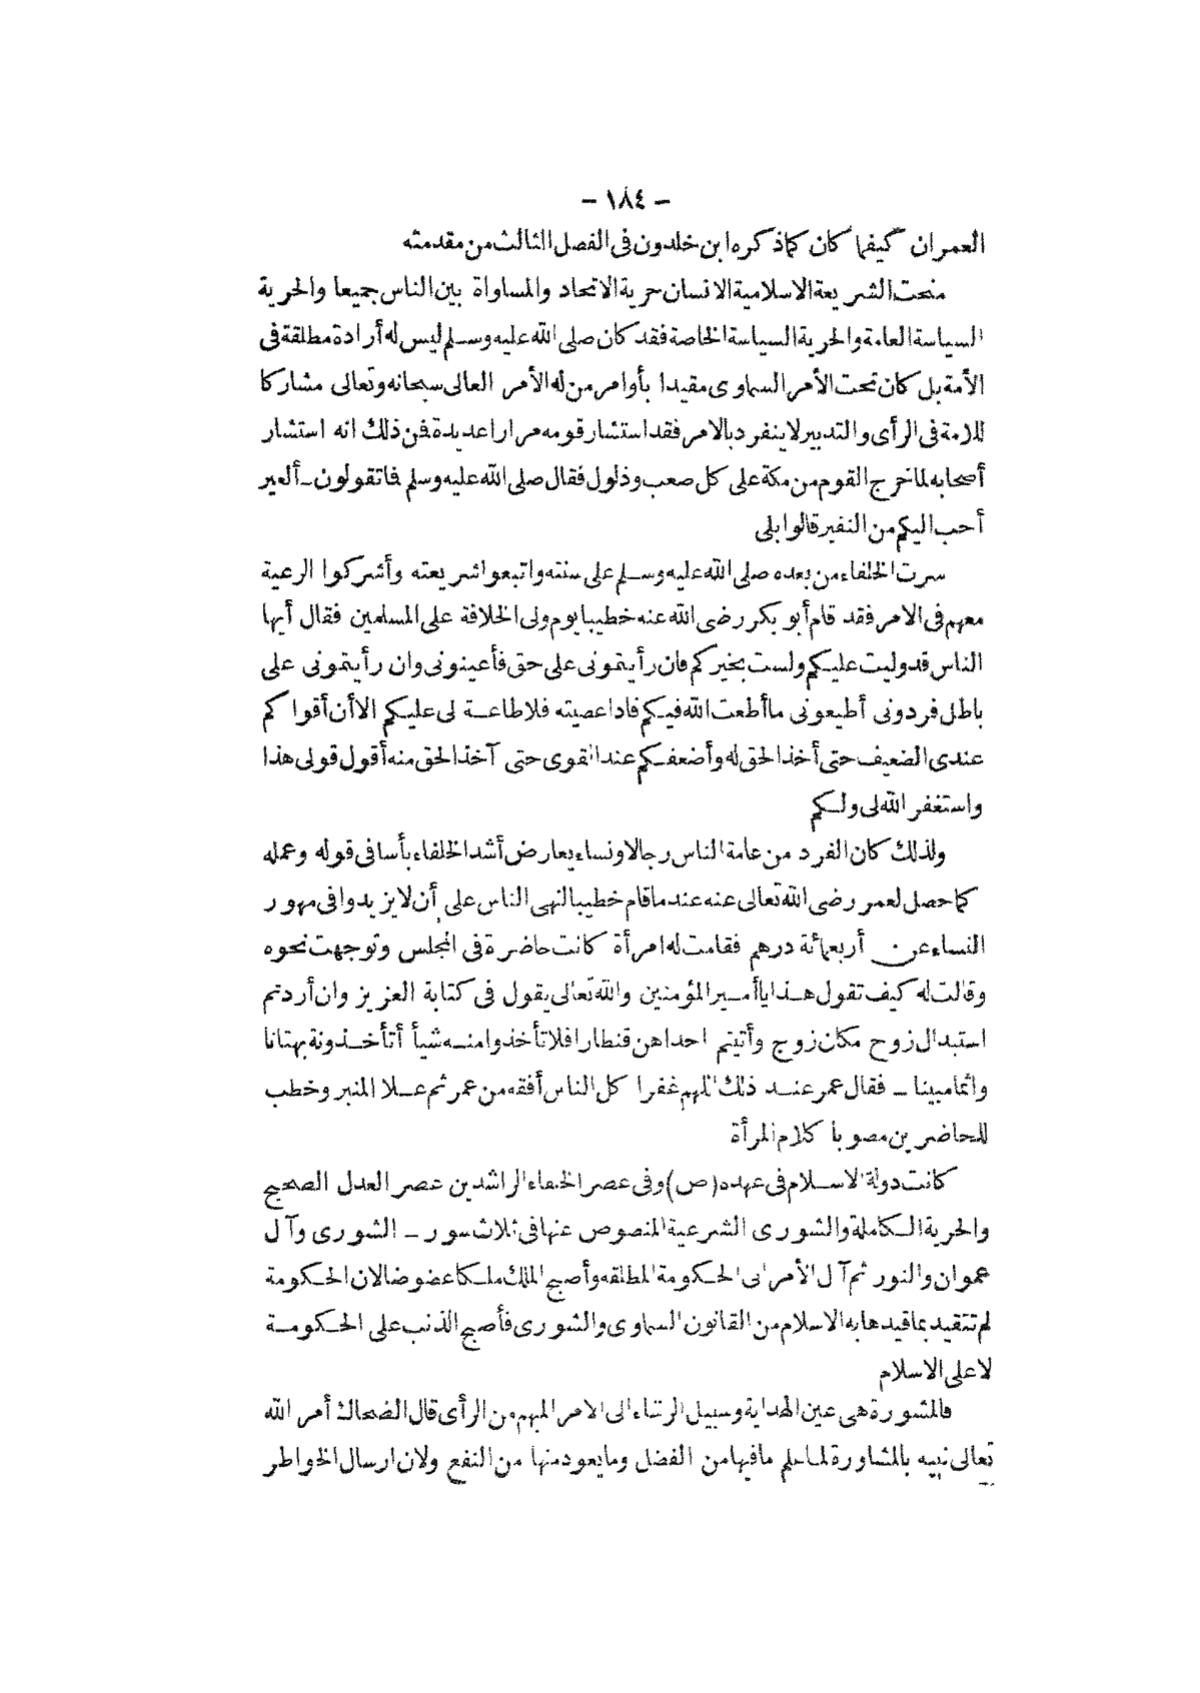 – ١٨٤ –
العمران كيفما كان كما ذكره ابن خلدون فى الفصل الثالث من مقدمته
منحت الشريعة الاسلامية الانسان حرية الاتحاد والمساواة بين الناس جميعا والحرية
السياسة العامة والحرية السياسة الخاصة فقد كان صلى الله عليه وسلم ليس له أرادة مطلقة فى
الأمة بل كان تحت الأمر السماوى مقيدا بأوامر من له الأمر العالى سبحانه وتعالى مشاركا
للامة فى الرأى والتدبير لا ينفرد بالامر فقد استشار قومه مرارا عديدة فمن ذلك انه استشار
أصحابه لما خرج القوم من مكة على كل صعب وذلول فقال صلى الله عليه وسلم فما تقولون ـ ألعير
أحب اليكم من النفير قالوا بلى
سرت الخلفاء من بعده صلى الله عليه وسلم على سنته واتبعوا شريعته وأشركوا الرعية
معهم فى الامر فقد قام أبو بكر رضى الله عنه خطيبا يوم ولى الخلافة على المسلمين فقال أيها
الناس قد وليت عليكم ولست بخيركم فان رأيتمونى على حق فأعينونى وان رأيتمونى على
باطل فردونى أطيعونى ما أطعت الله فيكم فاذا عصيته فلا طاعة لى عليكم الا أن أقواكم
عندى الضعيف حتى أخذ الحق له وأضعفكم عند القوى حتى آخذ الحق منه أقول قولى هذا
واستغفر الله لى ولكم
ولذلك كان الفرد من عامة الناس رجالا ونساء يعارض أشد الخلفاء بأسا فى قوله وعمله
كما حصل لعمر رضى الله تعالى عنه عند ما قام خطيبا لنهى الناس على أن لا يزيدوا فى مهور
النساء عن أربعمائة درهم فقامت له امرأة كانت حاضرة فى المجلس وتوجهت نحوه
وقالت له كيف تقول هذا يا أمير المؤمنين والله تعالى يقول فى كتابة العزيز وان أردتم
استبدال زوح مكان زوج وأتيتم احداهن قنطارا فلا تأخذوا منه شيأ أتأخذونة بهتانا
واثما مبينا ـ فقال عمر عند ذلك اللهم غفرا كل الناس أفقه من عمر ثم علا المنبر وخطب
للحاضرين مصوبا كلام المرأة
كانت دولة الاسلام فى عهده (ص) وفى عصر الخلفاء الراشدين عصر العدل الصحيح
والحرية الكاملة والشورى الشرعية المنصوص عنها فى ثلاث سور ـ الشورى وآل
عموان والنور ثم آل الأمر الى الحكومة المطلقه وأصبح الملك ملكا عضوضا لان الحكومة
لم تتقيد بما قيدها به الاسلام من القانون السماوى والشورى فأصبح الذنب على الحكومة
لا على الاسلام
فالمشورة هى عين الهداية وسبيل الرشاء الى الامر المبهم من الرأى قال الضحاك أمر الله
تعالى نبيه بالمشاورة لما علم ما فيها من الفضل وما يعود منها من النفع ولان ارسال الخواطر